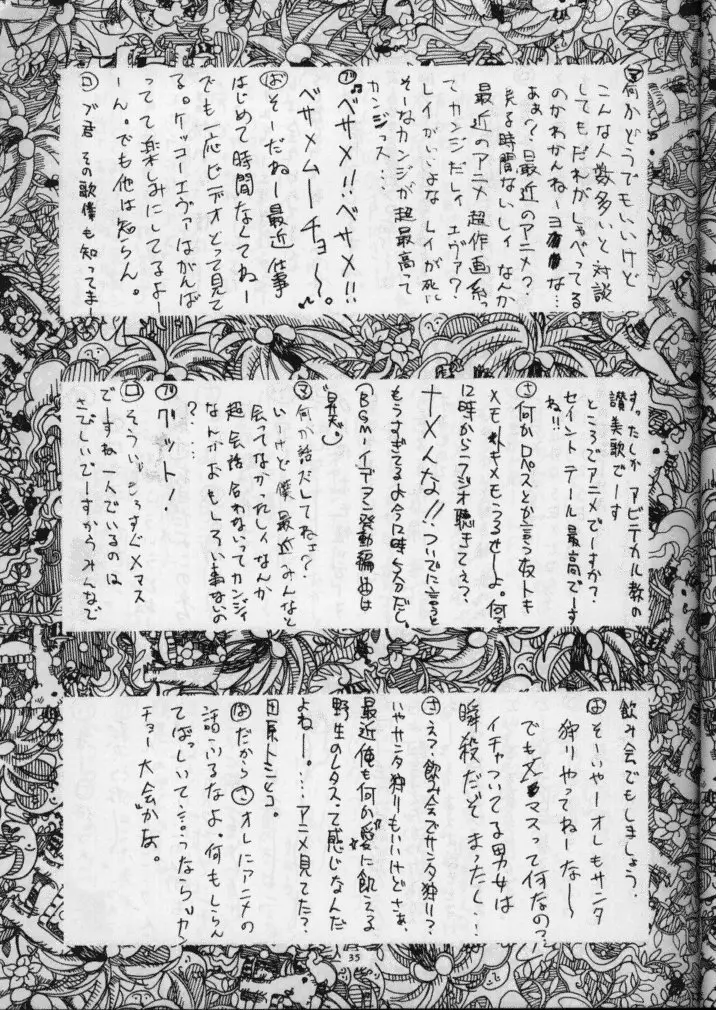 マ何かどうでもいいけど
こんな人数多いと対談
してもだれがしゃべってる
のかわかんねーヨ な…
あぁ?最近のアニメ?
見る時間ないしィ なんか
最近のアニメ 超作画系、
てカンジだしィ エヴァ?
レイがいいよな レイが死に
そーなカンジが超最高って
カンジっス…
ブ♫ベサメ!!ベサメ!!
ベサメムーチョ〜。
ばそーだねー最近仕事
はじめて時間なくてねー
でも一応ビデオとって見て
る。ケッコーエヴァはがんば
ってて楽しみにしてるよー
ーん。でも他は知らん。
ロブ君 その歌僕も知ってまーー
す。たしか アビテカル教の
讃美歌でーす
ところでアニメでーすか?
セイントテール最高でーす
ね!!
さ何かロペスとか言う夜トも
メモメモもうるせーよ。何?
12時からラジオ聴きてえ?
ナメんな!!ついでに言うと
もうすぎてるよ今12時
(BGMイデオン発動編曲は
マ何か話だしてねェ?
いーけど僕最近みんなと
会ってなかったしィなんか
超会話合わないってカンジィ
なんかおもしろい事ないの
?……
ブグット!
ロそういえばもうすぐXマス
でーすね一人でいるのは
さびしいでーすからみんなで
飲み会でもしましょう.
ばそーいやーオレもサンタ
狩りやってねーなー
でもXマスって何なの?
イチャついてる男女は
瞬殺だぞ まったく…!
さえ?飲み会でサンタ狩り?
いやサンタ狩りもいいけどさぁ、
最近俺も何か愛に飢える
野生のレタスって感じなんだ
よねー。…アニメ見てた?
田原トシヒコ。
ばだからさオレにアニメの
話ふるなよ.何もしらん
てばっしいて言うならリカ
チョー大会かな。
35